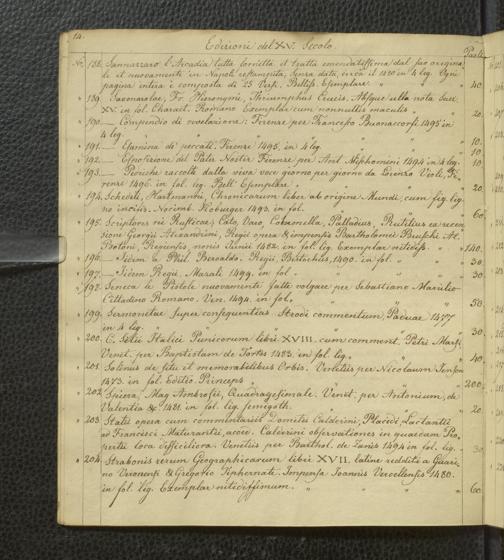 14.
Edizioni del XV.° Secolo
Paoli
N.° 188. Sannazzaro l'Arcadia tutta corretta et tratta emendatissima dal suo origina
le et nuovamenti in Napoli restampita, senza data, circa il 1480 in 4 leg. Ogni
pagina intera è composta di 25 Versi. Bellis. Esemplare " 40.
" 189. Savonarolae, Fr. Hieronymi, Triumphus Crucis Absque ulla nota Saec.
XV. in fol. Charact. Romano Exemplar cum nonnullis maculis " 20.
" 190. — Compendio di revelazione: Firenze per Francesco Buonaccorsi 1495 in
4 leg. " 10.
" 191. — Esamina di peccati, Firenze 1495. in 4 leg. " 10
" 192. — Esposizione del Pater Noster Firenze per Ant. Mischomeni 1494 in 4 leg. 10.
" 193. — Prediche raccolte dalla viva voce giorno per giorno da Lorenzo Violi, Fi-
renze 1496. in fol. leg. Bell' Esemplare " 20.
" 194. Schedel, Hartmanni, Chronicarum liber ab origine Mundi, cum fig. lig-
no incisis. Norimb. Koburger 1493. in fol. 60.
" 195. Scriptores rei Rusticae; Cato, Varo, Columella, Palladius, Rutilius ex recen-
sione Georgii Alexandrini, Regii opera & impensis Bartholomei Bruschi Al.
Botoni, Regiensis, nonis Junii 1482. in fol. lig. Exemplar nitidiss. " 140.
" 196. — Iidem a Phil. Beroaldo. Regii, Bertochus, 1490. in fol. " 30.
" 197. — Iidem Regii, Mazali 1499. in fol. " 30.
" 198. Seneca le Pistole nuovamente fatte volgare per Sebastiano Manilio
Cittadino Romano. Ven. 1494. in fol. 50.
" 199. Sermonetae Super consequentias. Strodi commentum, Paduae 1477
in 4 leg. 30.
" 200. C. Silii Italici Punicorum libri XVIII. cum comment. Petri Marsi
Venet. per Baptistam de Tortis 1483. in fol. lig. 40.
" 201. Solinus de situ et memorabilibus Orbis. Venetiis per Nicolaum Jenson
1473. in fol. Editio Princeps 200.
" 202. Spiera, Mag. Ambrosii, Quadragesimale. Venet. per Antonium, de
Valentia & 1481. in fol. lig. semigoth. 20.
" 203. Statii opera cum commentariis Domitii Calderini, Placidi, Lactantii
ac Francisci Maturantii, acced. Calderini observationes in quaedam Pro-
pertii loca difficiliora. Venetiis per Barthol. de Zanis 1494 in fol. lig. 30
" 204. Strabonis rerum Geographicarum libri XVII. latine redditi a Guari-
no Veronensi & Gregorio Tiphernate. Impensa Ioannis Vercellensis 1480.
in fol. lig. Exemplar nitidissimum. " 60.